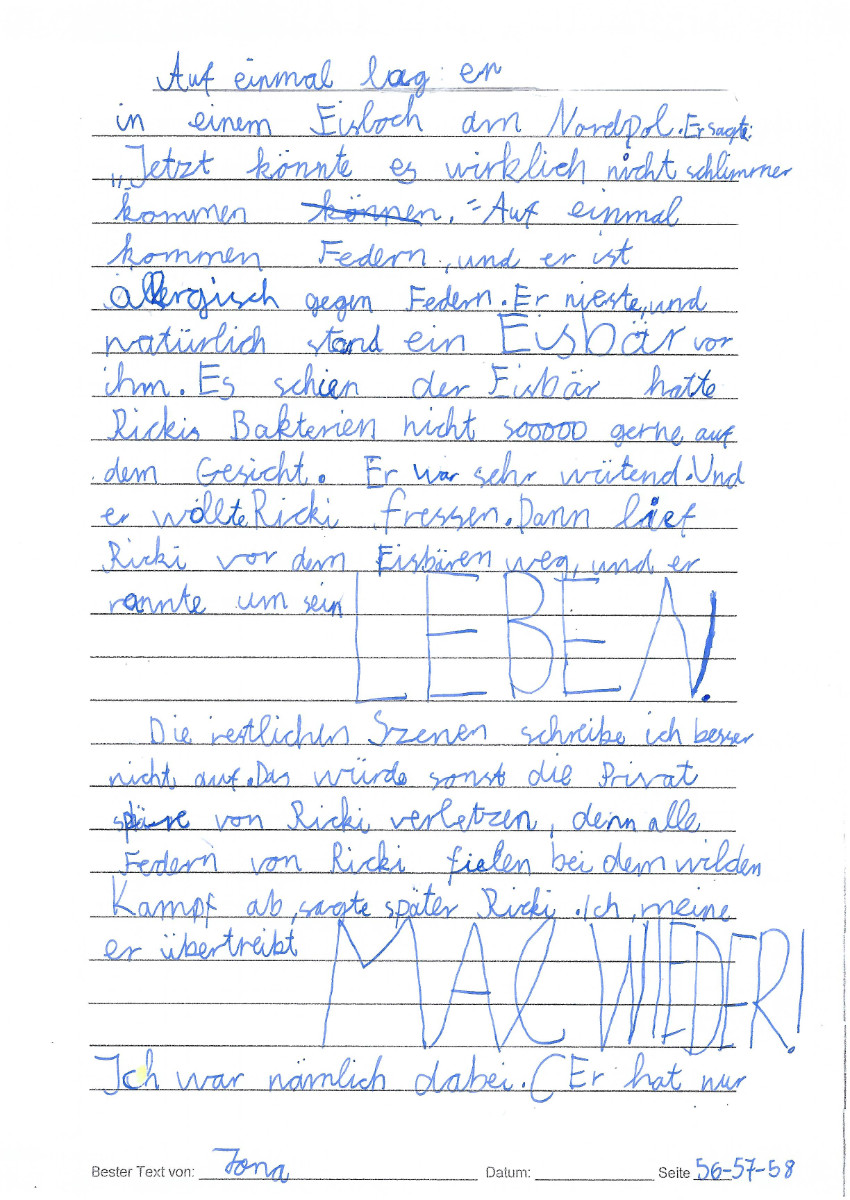 Auf einmal lag er
in einem Eisloch am Nordpol. Er sagte:
„Jetzt könnte es wirklich nicht schlimmer
kommen können." Auf einmal
kommen Federn, und er ist
allergisch gegen Federn. Er nieste, und
natürlich stand ein Eisbär vor
ihm. Es schien der Eisbär hatte
Rickis Bakterien nicht sooooo gerne auf
dem Gesicht. Er war sehr wütend. Und
er wollte Ricki fressen. Dann lief
Ricki vor dem Eisbären weg, und er
rannte um sein LEBEN!
Die restlichen Szenen schreibe ich besser
nicht auf. Das würde sonst die Privat
späre von Ricki verletzen, denn alle
Federn von Ricki fielen bei dem wilden
Kampf ab, sagte später Ricki. Ich, meine
er übertreibt MAL WIEDER!
Ich war nämlich dabei. (Er hat nur
Bester Text von: Jona Datum: Seite 56-57-58